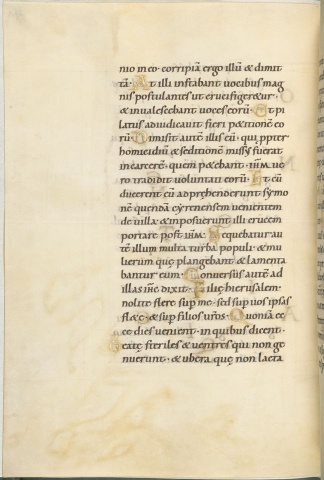 nio in eo· corripiā ergo illū & dimit
tā· At illi instabant vocibus mag
nis postulantes ut crucifigeretur·
& invalescebant voces eorū· Et pi
latus adiudicavit fieri petitionē eo
rū· Dimisit autē illis eū· qui ppter
homicidiū & seditionē missus fuerat
in carcerē· quem petebant· ihm̄ ve
ro tradidit voluntati eorū· Et cū
ducerent eū adprehenderunt symo
nē quendā cyrenensem venientem
de villa· & imposuerunt illi crucem
portare post ihm̄· Sequebatur au
tē illum multa turba populi· & mu
lierum quę plangebant & lamenta
bantur eum· Conversus autē ad
illas ihc̄ dixit· Filię hierusalem·
nolite flere sup me· sed sup vos ipsas
fl&ę· & sup filios vr̄os· Quoniā ec
ce dies venient· in quibus dicent·
Beatę steriles & ventres qui non ge
nuerunt· & ubera quę non lacta